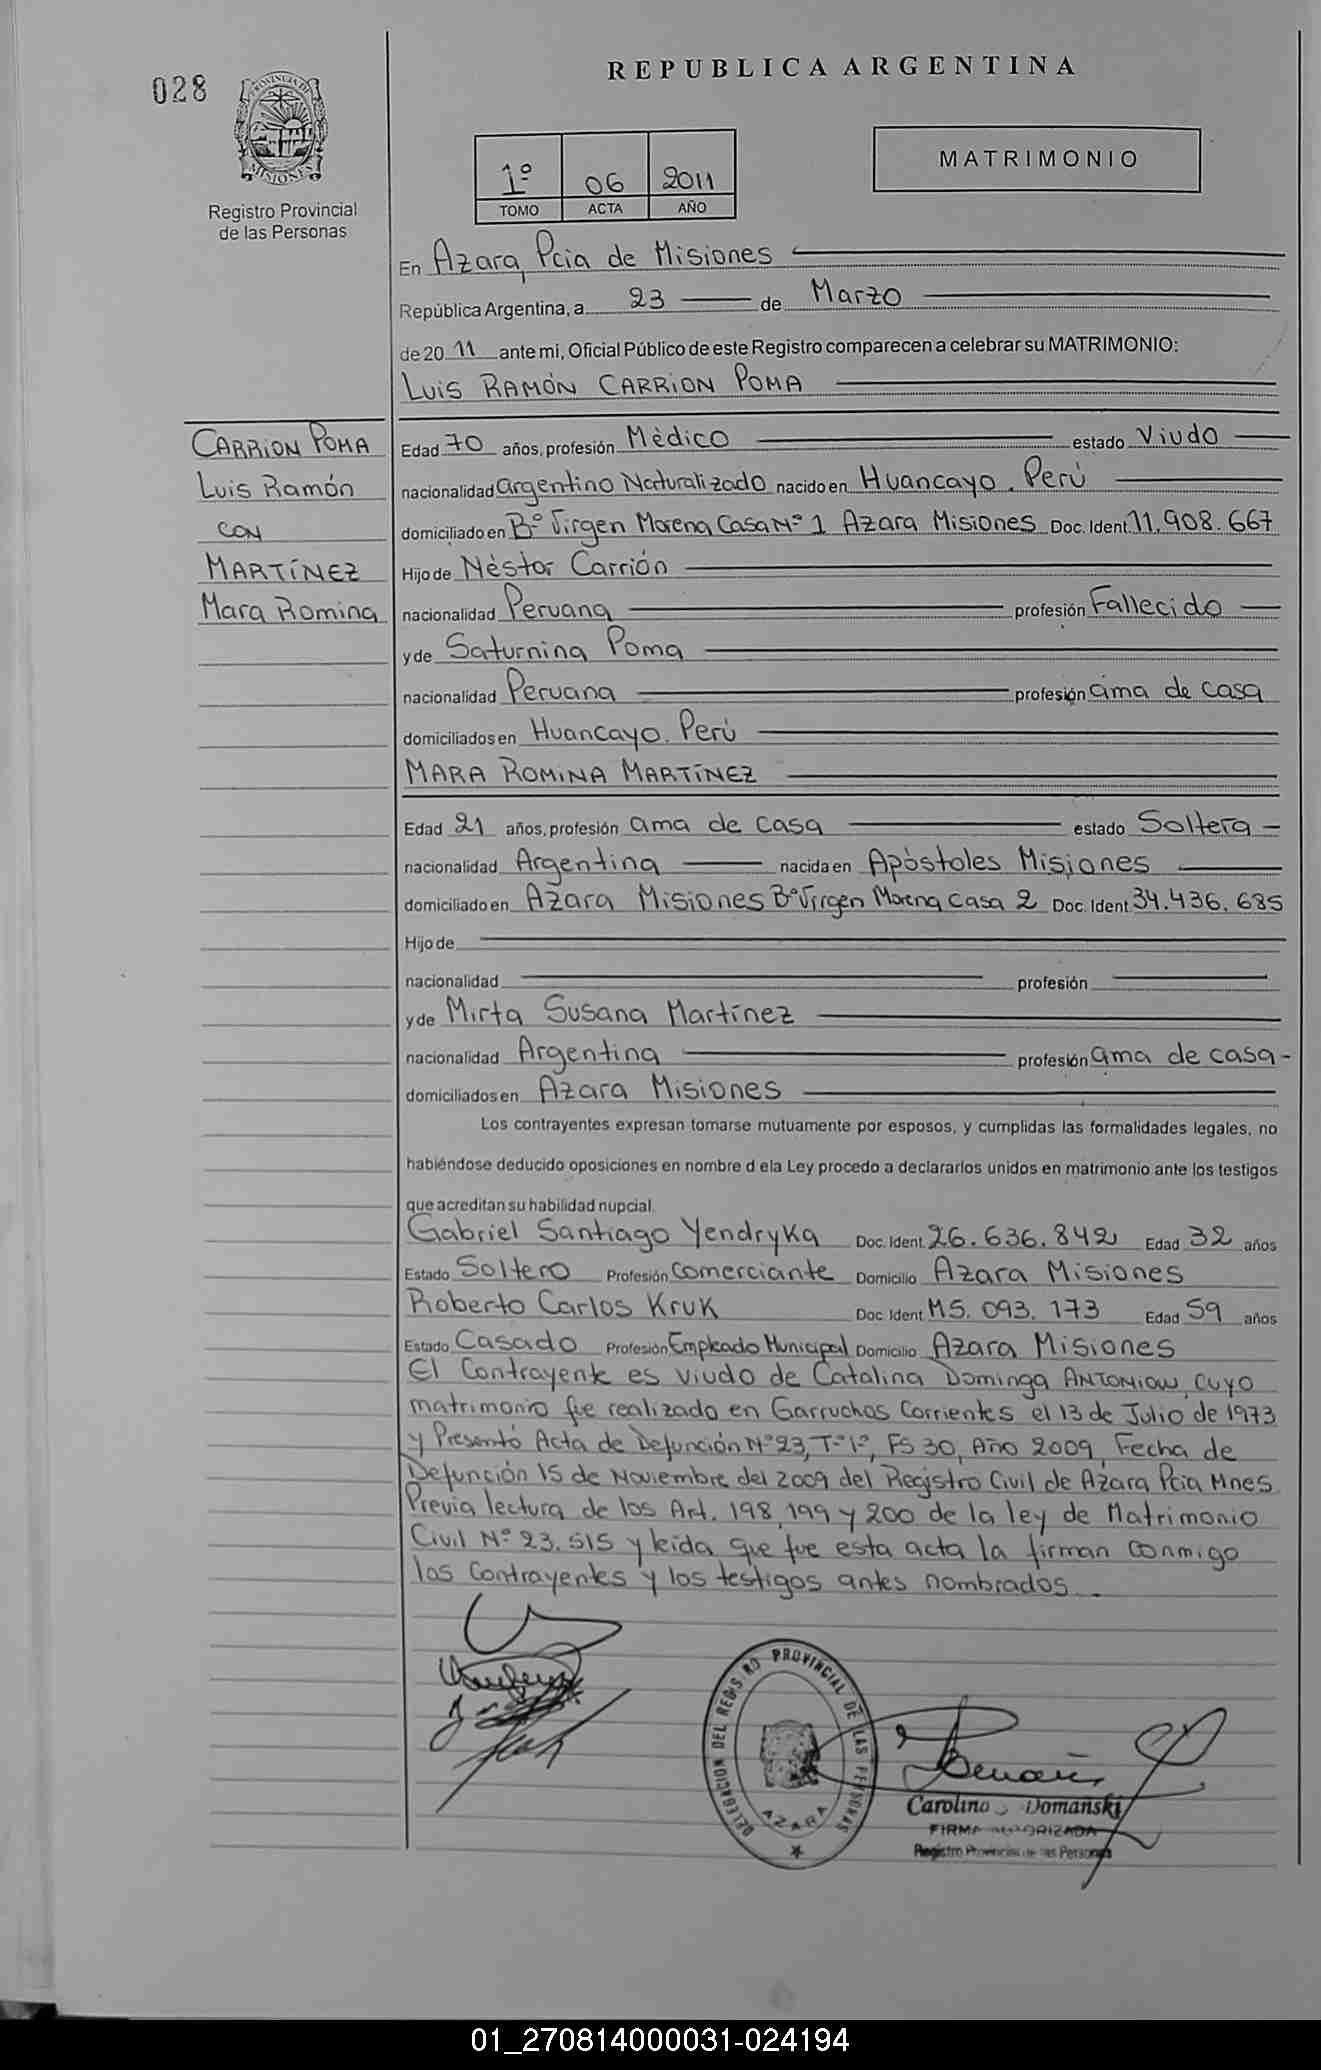 028
PROVINCIA DE
MISIONES
Registro Provincial
de las Personas
REPUBLICA ARGENTINA
1º 06 2011
TOMO ACTA AÑO
MATRIMONIO
En Azara, Pcia de Misiones
República Argentina, a 23 de Marzo
de 2011 ante mi, Oficial Público de este Registro comparecen a celebrar su MATRIMONIO:
LUIS RAMÓN CARRION POMA
CARRION POMA
Luis Ramón
CON
MARTÍNEZ
Mara Romina
Edad 70 años, profesión Médico estado Viudo
nacionalidad argentino Naturalizado nacido en Huancayo. Perú
domiciliado en Bº Virgen Morena Casa Nº 1 Azara Misiones Doc. Ident. 11.908.667
Hijo de Néstor Carrión
nacionalidad Peruana profesión Fallecido
y de Saturnina Poma
nacionalidad Peruana profesión ama de casa
domiciliados en Huancayo. Perú
MARA ROMINA MARTÍNEZ
Edad 21 años, profesión ama de casa estado Soltera
nacionalidad Argentina nacida en Apóstoles Misiones
domiciliado en Azara Misiones Bº Virgen Morena casa 2 Doc. Ident. 34.436.685
Hijo de
nacionalidad profesión
y de Mirta Susana Martínez
nacionalidad Argentina profesión ama de casa
domiciliados en Azara Misiones
Los contrayentes expresan tomarse mutuamente por esposos, y cumplidas las formalidades legales, no
habiéndose deducido oposiciones en nombre d ela Ley procedo a declararlos unidos en matrimonio ante los testigos
que acreditan su habilidad nupcial.
Gabriel Santiago Yendryka Doc. Ident. 26.636.842 Edad 32 años
Estado Soltero Profesión Comerciante Domicilio Azara Misiones
Roberto Carlos Kruk Doc. Ident. M5.093.173 Edad 59 años
Estado Casado Profesión Empleado Municipal Domicilio Azara Misiones
El Contrayente es viudo de Catalina Dominga ANTONIOW, cuyo
matrimonio fue realizado en Garruchos Corrientes el 13 de Julio de 1973
y Presentó Acta de Defunción Nº 23, Tº 1º, FS 30, Año 2009, Fecha de
Defunción 15 de Noviembre del 2009 del Registro Civil de Azara Pcia Mnes
Previa lectura de los Art. 198, 199 y 200 de la ley de Matrimonio
Civil Nº 23.515 y leida que fue esta acta la firman conmigo
los contrayentes y los testigos antes nombrados.
DELEGACION DEL REGISTRO PROVINCIAL DE LAS PERSONAS
AZARA
Domanski
FIRMA AUTORIZADA
Registro Provincial de las Personas
01_270814000031-024194